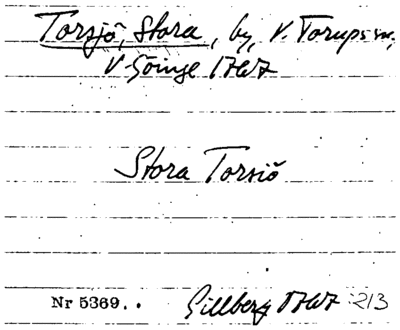 Torsjö, Stora, by, V. Torups sn,
V-Göinge 1767
Stora Torsiö
Nr 5369. . Gillberg 1767 213